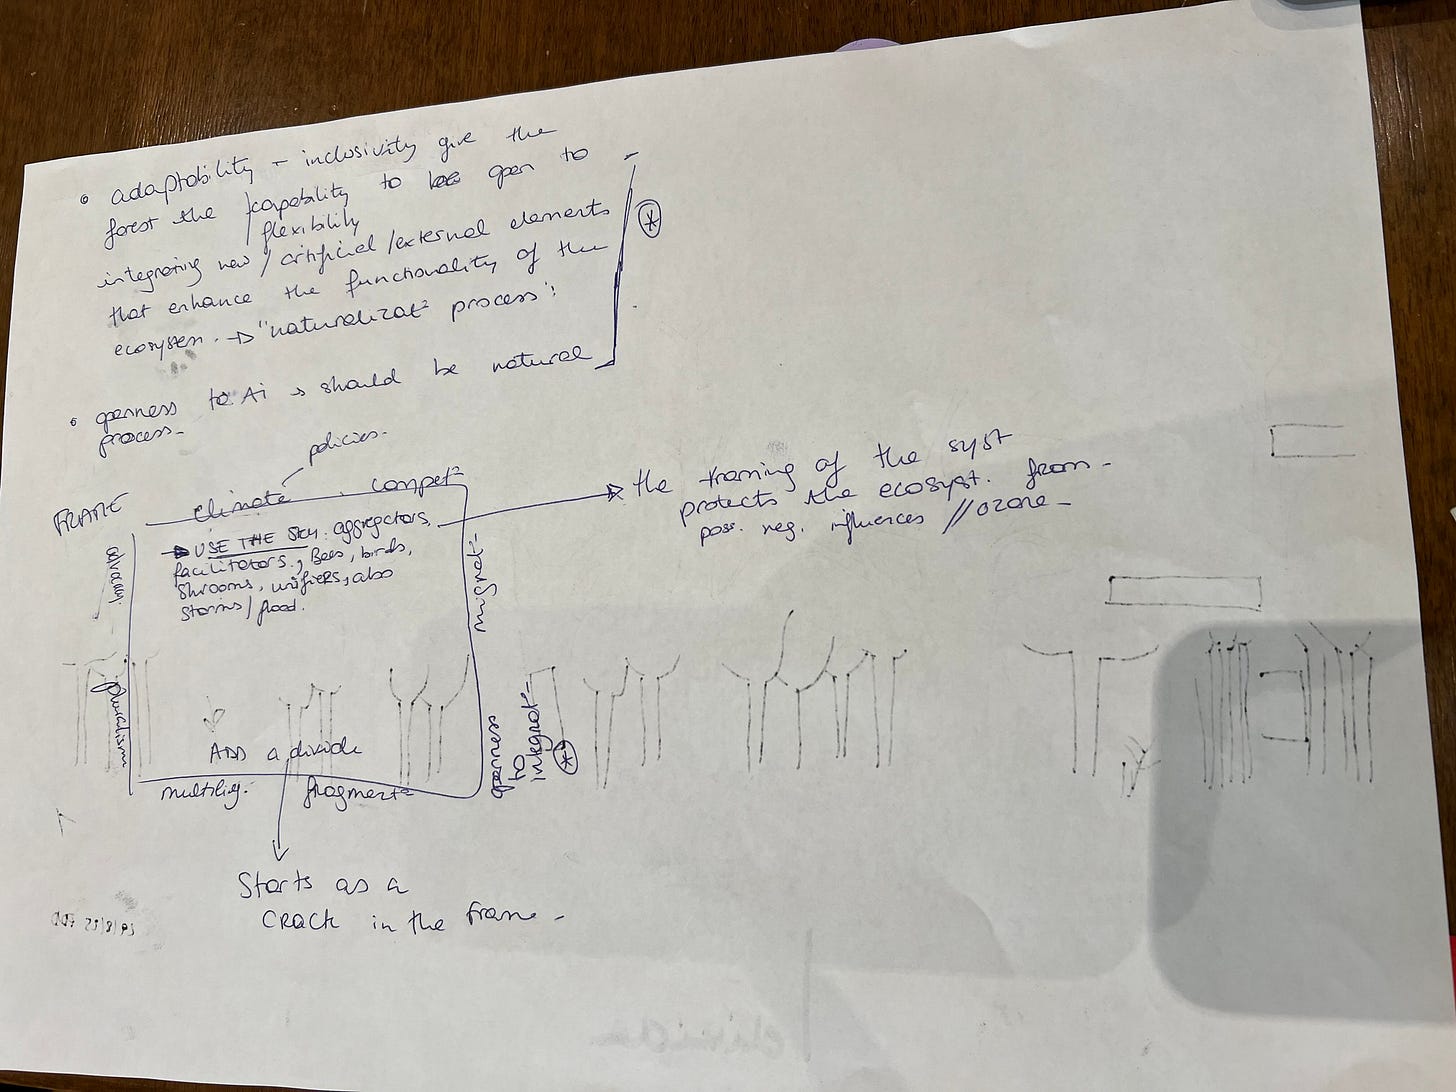 • adaptability - inclusivity give the
forest the /capability to be open to
/flexibility
integrating new / artificial /external elements
that enhance the functionality of the
ecosystem. → "naturalizat° process".
• openness to Ai → should be natural
process-
policies-
FRAME
climate compet°
→ USE THE SKY: aggregators,
facilitators, Bees, birds,
shrooms, unifiers, also
storms/flood.
pluralism
ADD a divide
multilig. fragment°
migrat°
openness
to
integrat°
*
the framing of the syst
protects the ecosyst. from
poss. neg. influences //ozone-
Starts as a
CRACK in the frame-